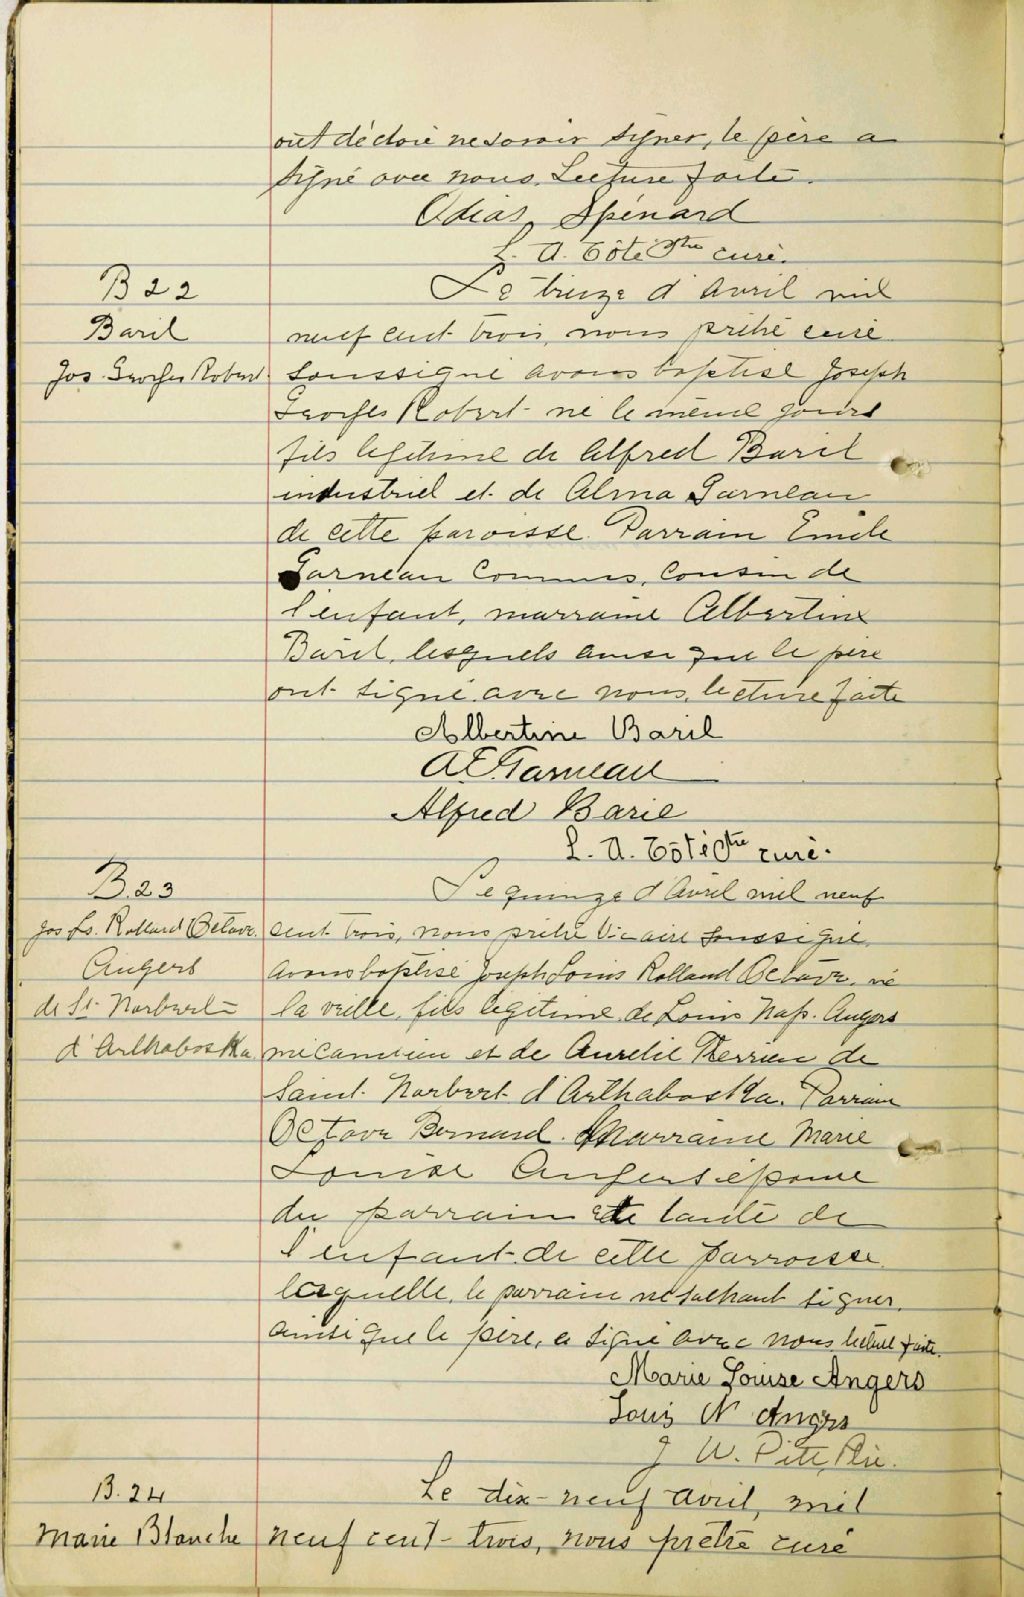 ont déclaré ne savoir signer, le père a
signé avec nous. Lecture faite.
Odias Spénard
L. A. Côté Ptre curé.
B 22
Baril
Jos. Georges Robert
Le treize d'Avril mil
neuf cent trois, nous prêtre curé
soussigné avons baptisé Joseph
Georges Robert né le même jour
fils légitime de Alfred Baril
industriel et de Alma Garneau
de cette paroisse. Parrain Emile
Garneau Commis, Cousin de
l'enfant, marraine Albertine
Baril, lesquels ainsi que le père
ont signé avec nous, lecture faite
Albertine Baril
A E Garneau
Alfred Baril
L. A. Côté Ptre curé.
B. 23
Jos Ls. Rolland Octave
Angers
de St Norbert
d'Arthabaska
Le quinze d'Avril mil neuf
cent trois, nous prêtre Vicaire soussigné
avons baptisé Joseph Louis Rolland Octave, né
la veille, fils légitime de Louis Nap. Angers
mécanicien et de Aurélie Therrien de
Saint Norbert d'Arthabaska. Parrain
Octave Bernard. Marraine Marie
Louise Angers épouse
du parrain et tante de
l'enfant de cette parroisse
laquelle, le parrain ne sachant signer,
ainsi que le père, a signé avec nous lecture faite.
Marie Louise Angers
Louis N Angers
J W. Ptre.
B. 24
Marie Blanche
Le dix-neuf avril, mil
neuf cent-trois, nous prêtre curé